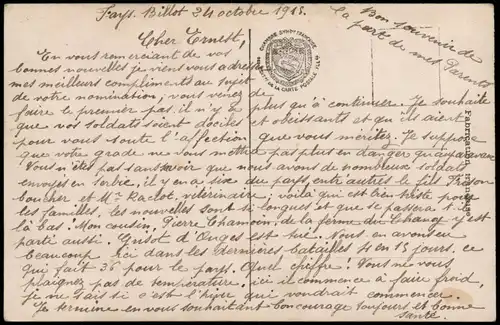 Fays-Billot 24 octobre 1915.
Bon souvenir de
la part de mes Parents
Cher Ernest,
En vous remerciant de vos
bonnes nouvelles je viens vous adresser
mes meilleurs compliments au sujet
de votre nomination, vous venez de
faire le premier pas, il n'y a plus qu'à continuer. Je souhaite
que vos soldats soient dociles et obéissants et qu'ils aient
pour vous toute l'affection que vous méritez. Je suppose
que votre grade ne vous mettra pas plus en danger qu'auparavant
Vous n'êtes pas sans savoir que nous avons de nombreux soldats
envoyés en Serbie, il y en a six du pays entr'autres le fils
boucher et Mr Raclot, vétérinaire, voilà qui est bien pour
les familles, les nouvelles sont si longues et que se passera-t-il
là bas. Mon cousin, Pierre Chamoin de la ferme du est
parti aussi. d'Anges est tué. Nous en avons eu
beaucoup ici dans les dernières batailles 4 en 15 jours, ce
qui fait 35 pour le pays. Quel chiffre. Vous ne vous
plaignez pas de température, ici il commence à faire froid,
je ne sais si c'est l'hiver qui voudrait commencer.
Je termine en vous souhaitant bon courage toujours et bonne
santé.
CHAMBRE SYND. FRANÇAISE
DE LA CARTE POSTALE
Fabrication française